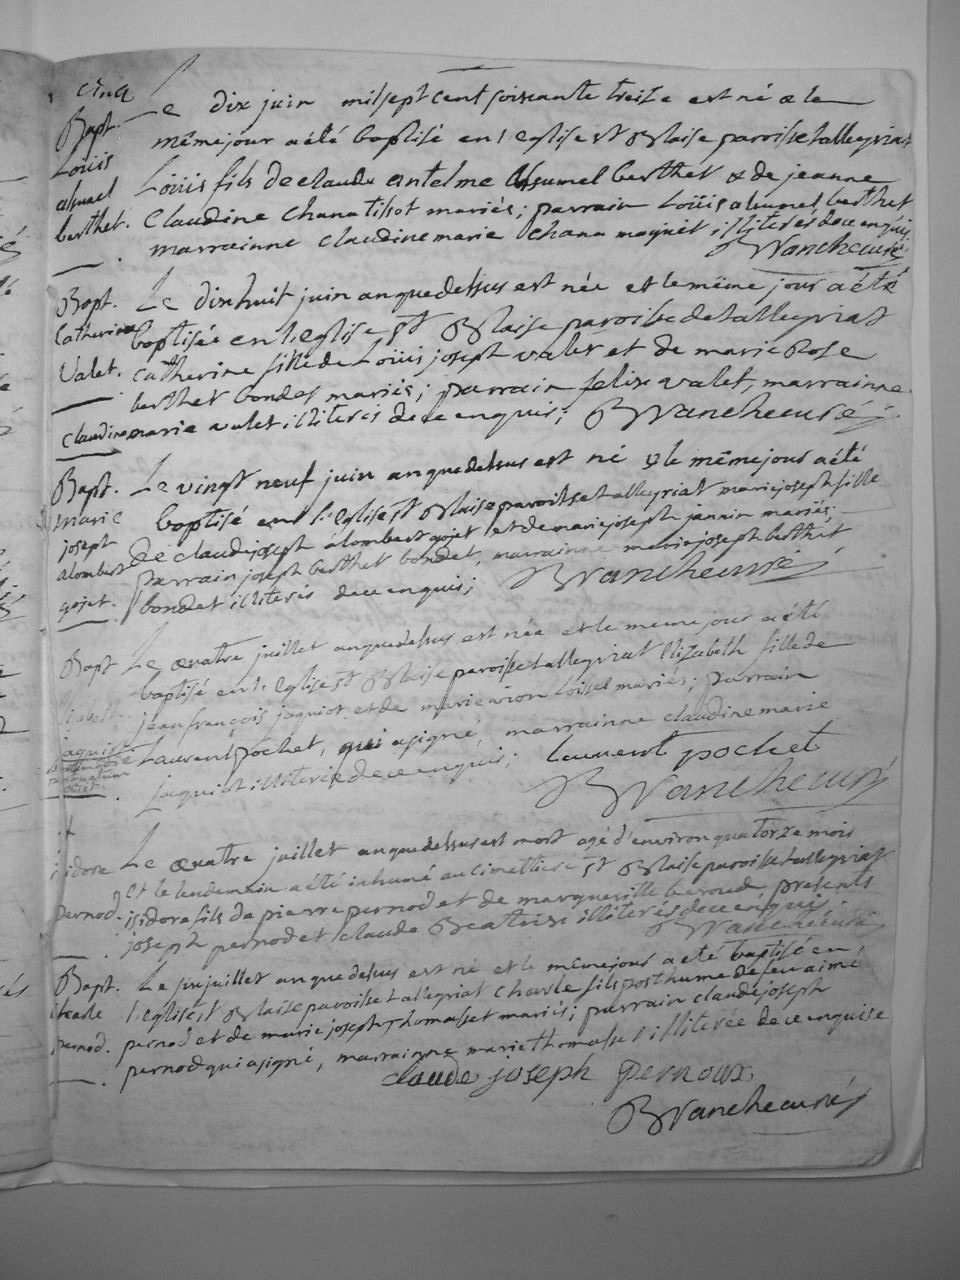 cinq
Bapt. Le dix juin mil sept cent soixante treize est né & le
Loüis mêmejour a été baptisé en l'eglise st Blaise paroisse talleyriat
Loüis fils de claude antelme alsumel berthet & de jeanne
berthet. Claudine Chanatissot mariés; parrain Loüis alsumel berthet
marrainne claudine marie Chana maquet illiterés de ce enquis;
BVanche curé
Bapt. Le dixhuit juin anquedessus est née et le même jour a été
Catherine baptisée en l'eglise st Blaise paroisse de talleyriat
Valet. Catherine fille de Loüis joseph valet et de marie Rose
berthet bondet mariés; parrain felix valet, marrainne
claudine marie valet illiterés de ce enquis; BVanche curé
Bapt. Le vingt neuf juin anquedessus est né & le mêmejour a été
marie baptisé en l'eglise st Blaise paroisse talleyriat marie joseph fille
joseph de claude joseph alombert gojet et de marie joseph jannin mariés;
alombert parrain joseph berthet bondet, marrainne marie joseph berthet
gojet. bondet illiterés de ce enquis; BVanche curé
Bapt Le quatre juillet anquedessus est née et le meme jour a été
baptisé en l'eglise st Blaise paroisse talleyriat Elizabeth fille de
jean françois jaquiot et de marie Loissel mariés; parrain
Laurent pochet, qui a signé, marrainne claudine marie
jaquiot illiterée de ce enquis; Laurent pochet
BVanche curé
+
isidore Le quatre juillet anquedessus est mort agé d'environ quatorze mois
et le lendemain a été inhumé au cimettiere st Blaise paroisse talleyriat
pernod. isidore fils de pierre pernod et de marguerite beroud, presents
joseph pernod et claude Beatrix illiterés de ce enquis;
BVanche curé
Bapt. Le six juillet anquedessus est né et le même jour a été baptisé en
charle l'eglise st Blaise paroisse talleyriat Charle fils posthume de feu aimé
pernod. pernod et de marie joseph thomasset mariés; parrain claude joseph
pernod qui a signé, marrainne marie thomasset illiterée de ce enquise
claude joseph pernoux
BVanche curé